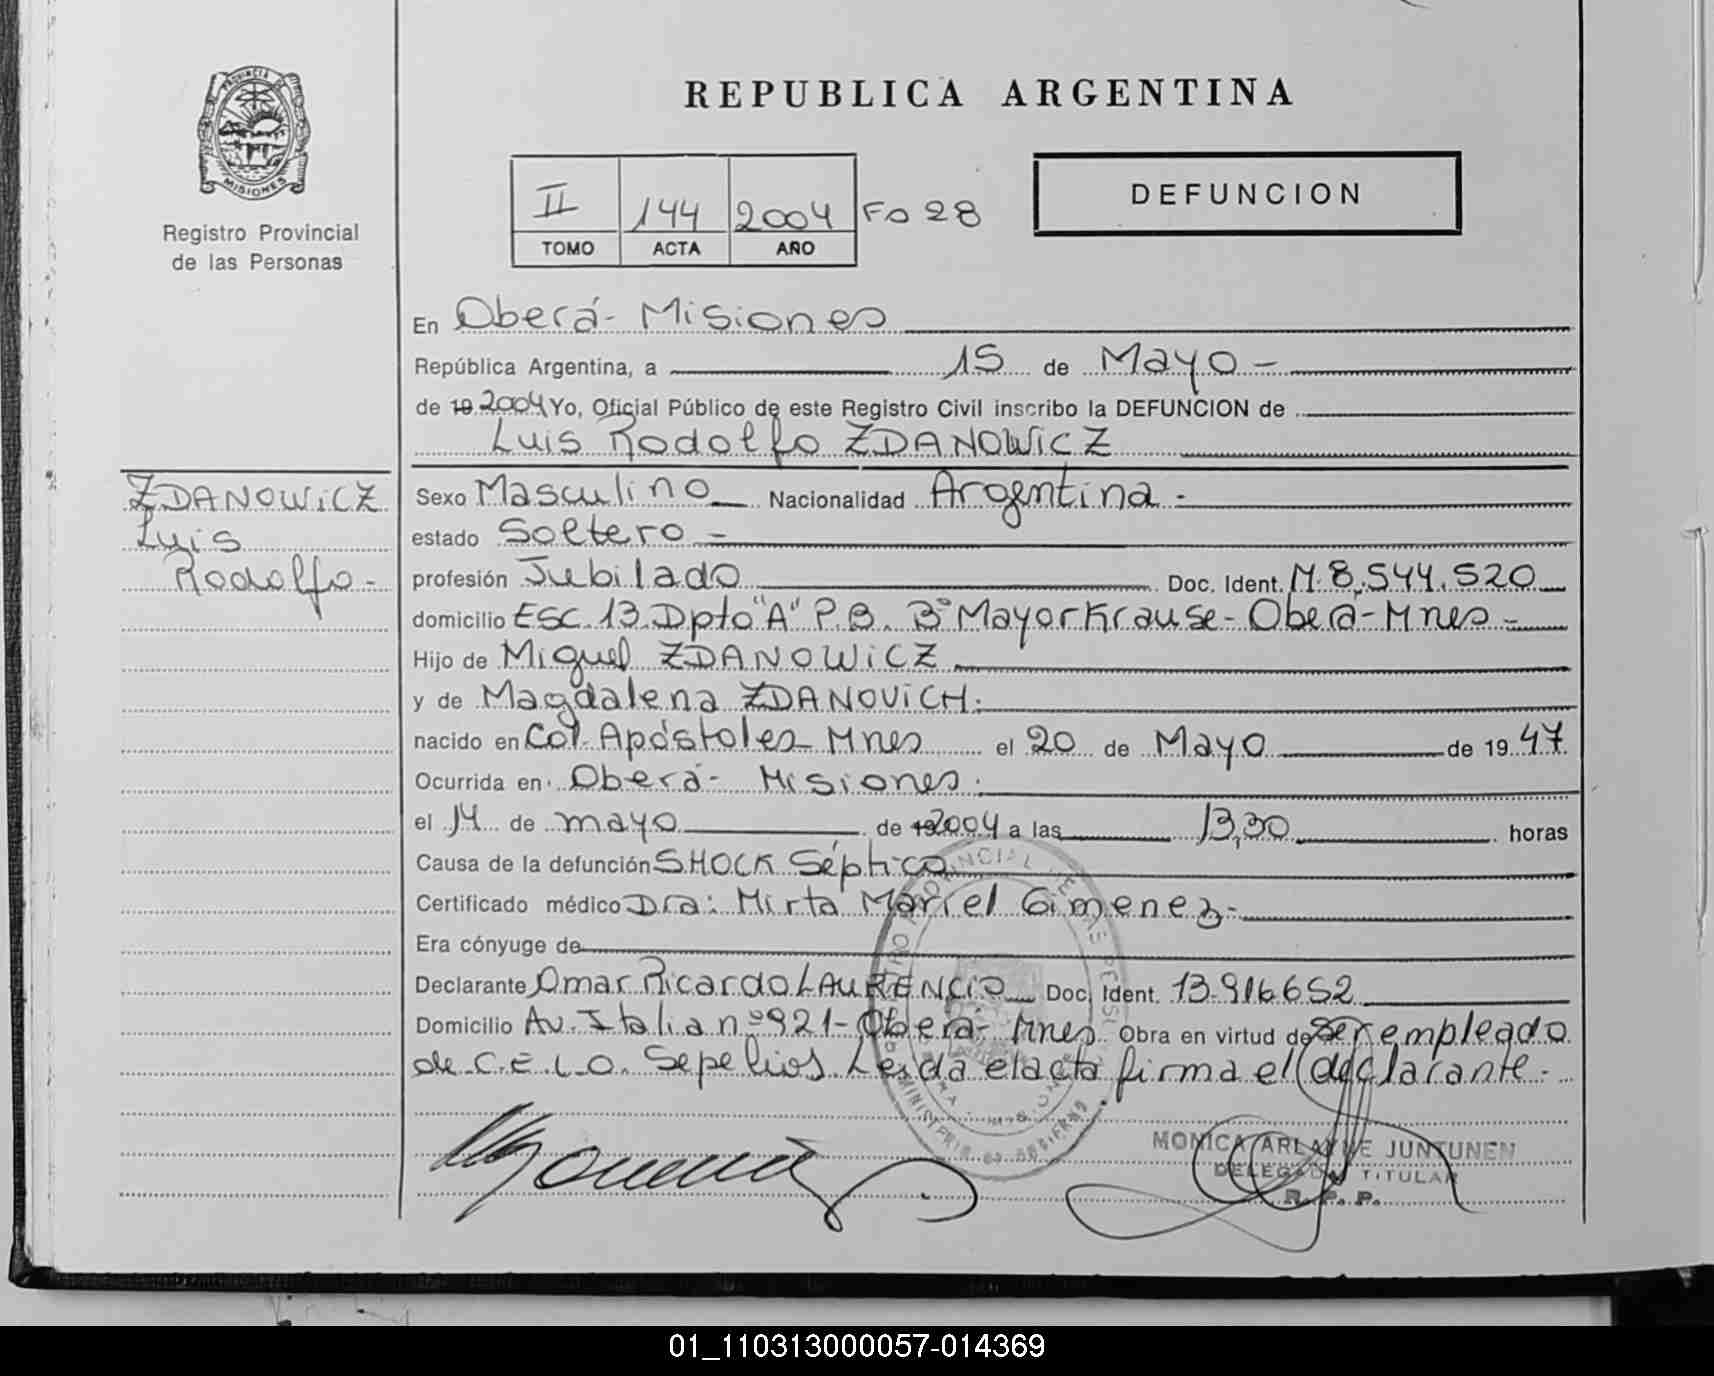 PROVINCIA DE
MISIONES
Registro Provincial
de las Personas
REPUBLICA ARGENTINA
II 144 2004 Fo 28
TOMO ACTA AÑO
DEFUNCION
En Oberá - Misiones
República Argentina, a 15 de Mayo -
de 19 2004 Yo, Oficial Público de este Registro Civil inscribo la DEFUNCION de
Luis Rodolfo ZDANOWICZ
ZDANOWICZ
Luis
Rodolfo -
Sexo Masculino Nacionalidad Argentina -
estado Soltero -
profesión Jubilado Doc. Ident. M. 8.544.520
domicilio ESC. 13. Dpto "A" P.B. B° Mayor Krause - Oberá - Mnes -
Hijo de Miguel ZDANOWICZ
y de Magdalena ZDANOVICH.
nacido en Col. Apóstoles Mnes el 20 de Mayo de 19 47
Ocurrida en Oberá - Misiones.
el 14 de mayo de 19 2004 a las 13,30 horas
Causa de la defunción SHOCK Séptico
Certificado médico Dra: Mirta Mariel Gimenez -
Era cónyuge de
Declarante Omar Ricardo LAURENCIO Doc. Ident. 13.916652
Domicilio Av. Italia nº 921 - Oberá - Mnes Obra en virtud de ser empleado
de C.E.L.O. Sepelios. Leida el acta firma el declarante -
MONICA ARLAYNE JUNTUNEN
DELEGADA TITULAR
R. P. P.
01_110313000057-014369